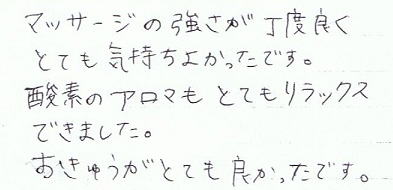 マッサージの強さが丁度良く
とても気持ちよかったです。
酸素のアロマもとてもリラックス
できました。
おきゅうがとても良かったです。